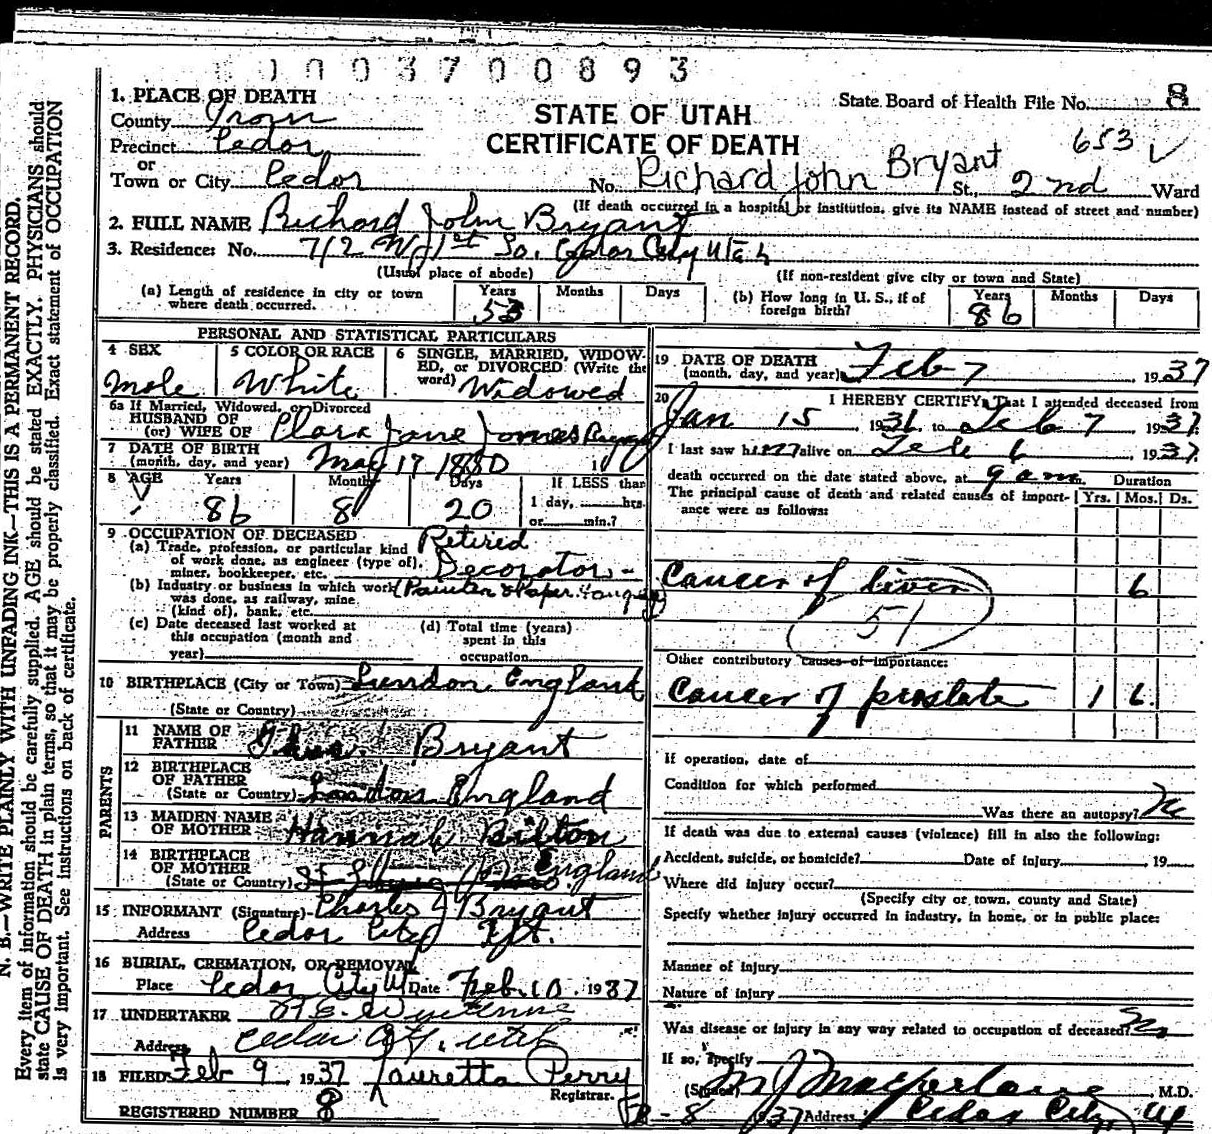 0003700893
1. PLACE OF DEATH
County Iron
Precinct Cedar
or
Town or City Cedar
STATE OF UTAH
CERTIFICATE OF DEATH
State Board of Health File No. 8
653
No. Richard John Bryant St., 2nd Ward
(If death occurred in a hospital or institution, give its NAME instead of street and number)
2. FULL NAME Richard John Bryant
3. Residence: No. 712 W 1st So. Cedar City Utah
(Usual place of abode)
(If non-resident give city or town and State)
(a) Length of residence in city or town where death occurred. Years 53 Months Days
(b) How long in U. S., if of foreign birth? Years 86 Months Days
PERSONAL AND STATISTICAL PARTICULARS
4 SEX Male
5 COLOR OR RACE White
6 SINGLE, MARRIED, WIDOWED, or DIVORCED (Write the word) Widowed
6a If Married, Widowed, or Divorced
HUSBAND OF
(or) WIFE OF Clara Jane Jones Bryant
7 DATE OF BIRTH
(month, day, and year) May 17 1850
8 AGE Years 86 Months 8 Days 20
If LESS than
1 day, hrs.
or min.?
9 OCCUPATION OF DECEASED Retired
(a) Trade, profession, or particular kind
of work done, as engineer (type of), Decorator
miner, bookkeeper, etc.
(b) Industry or business in which work (Painter & Paper
was done, as railway, mine
(kind of), bank, etc.
(c) Date deceased last worked at
this occupation (month and
year)
(d) Total time (years)
spent in this
occupation
10 BIRTHPLACE (City or Town) London, England
(State or Country)
PARENTS
11 NAME OF
FATHER Bryant
12 BIRTHPLACE
OF FATHER
(State or Country) London England
13 MAIDEN NAME
OF MOTHER Hannah Bilton
14 BIRTHPLACE
OF MOTHER England
(State or Country)
15 INFORMANT (Signature) Charles J Bryant
Address Cedar City Ut.
16 BURIAL, CREMATION, OR REMOVAL
Place Cedar City Ut Date Feb. 10. 1937
17 UNDERTAKER
Address Cedar City, Utah
18 FILED Feb 9 1937 Lauretta Perry
Registrar.
REGISTERED NUMBER 8
19 DATE OF DEATH
(month, day, and year) Feb 7, 1937
20 I HEREBY CERTIFY, That I attended deceased from
Jan 15 to Feb 7 1937.
I last saw him alive on Feb 6, 1937.
death occurred on the date stated above, at 9 am. Duration
The principal cause of death and related causes of importance were as follows: Yrs. Mos. Ds.
Cancer of liver 6
51
Other contributory causes of importance:
Cancer of prostate 1 6
If operation, date of
Condition for which performed
Was there an autopsy? No
If death was due to external causes (violence) fill in also the following:
Accident, suicide, or homicide? Date of injury 19
Where did injury occur?
(Specify city or town, county and State)
Specify whether injury occurred in industry, in home, or in public place:
Manner of injury
Nature of injury
Was disease or injury in any way related to occupation of deceased? No
If so, specify
(Signed) M J Macfarlane, M.D.
Feb-8 1937 Address Cedar City, Ut
N. B.—WRITE PLAINLY WITH UNFADING INK—THIS IS A PERMANENT RECORD.
Every item of information should be carefully supplied. AGE should be stated EXACTLY. PHYSICIANS should
state CAUSE OF DEATH in plain terms, so that it may be properly classified. Exact statement of OCCUPATION
is very important. See instructions on back of certificate.